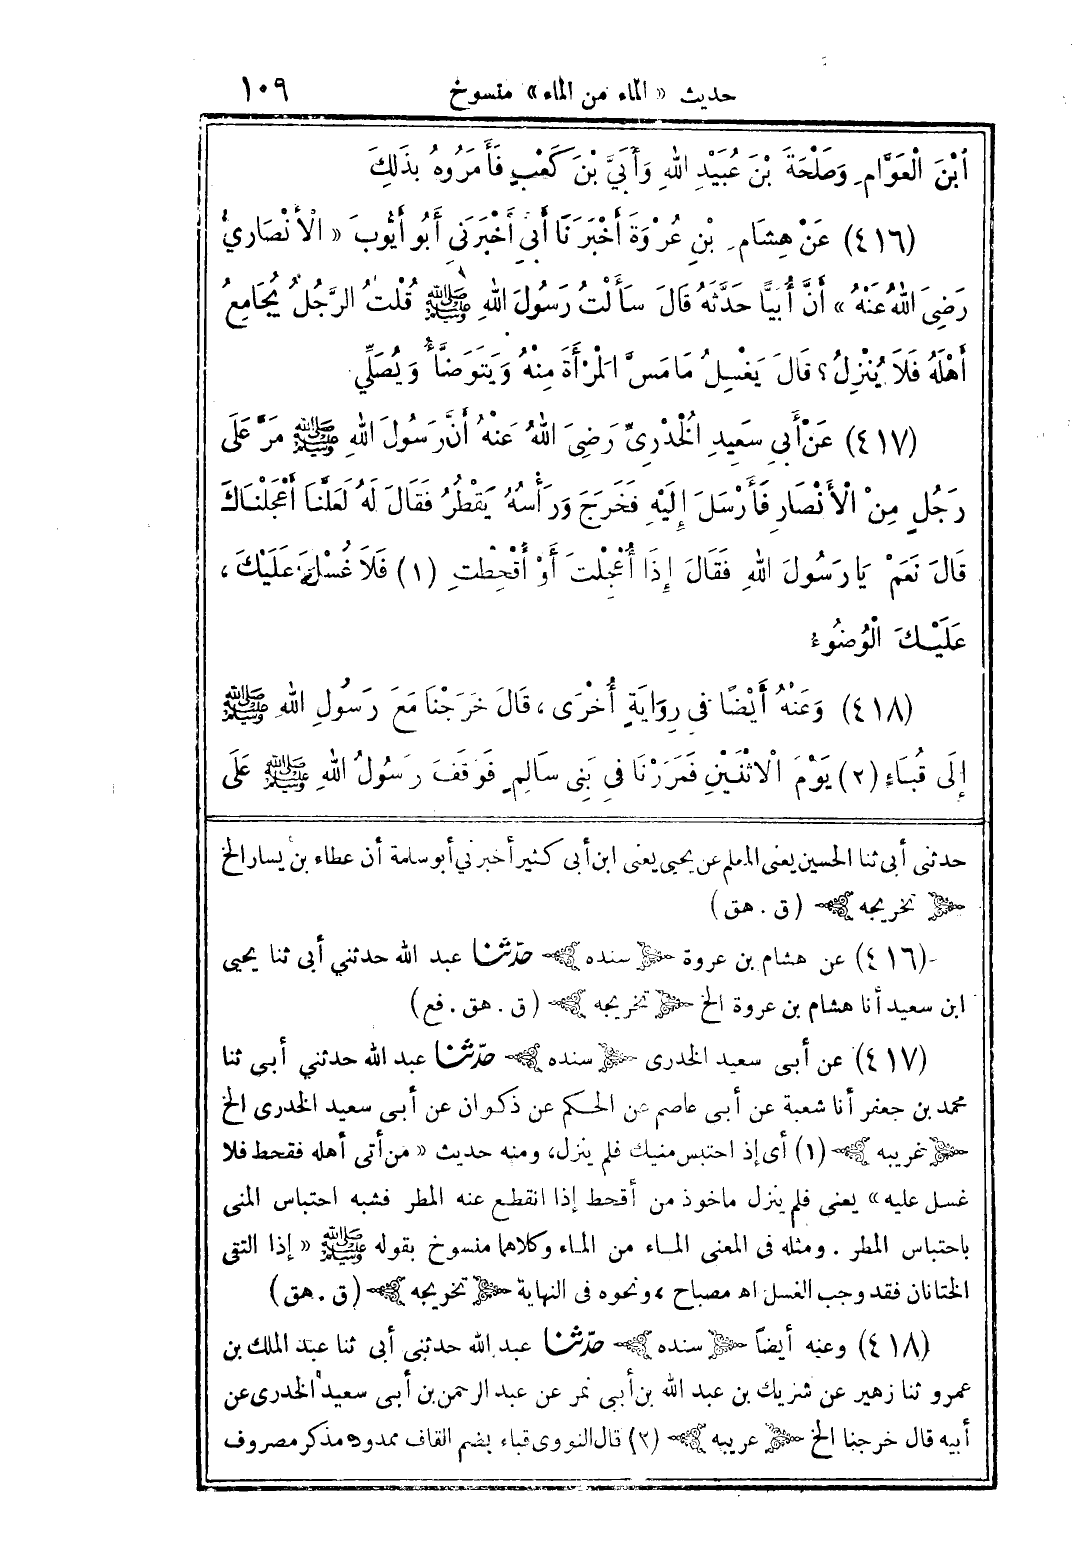 حديث « الماء من الماء » منسوخ ١٠٩
ابْنَ الْعَوَّامِ وَطَلْحَةَ بْنَ عُبَيْدِ اللهِ وَأُبَيَّ بْنَ كَعْبٍ فَأَمَرُوهُ بِذَلِكَ
(٤١٦) عَنْ هِشَامِ بْنِ عُرْوَةَ أَخْبَرَنَا أَبِي أَخْبَرَنِي أَبُو أَيُّوبَ « الْأَنْصَارِيُّ
رَضِيَ اللهُ عَنْهُ » أَنَّ أُبَيًّا حَدَّثَهُ قَالَ سَأَلْتُ رَسُولَ اللهِ ﷺ قُلْتُ الرَّجُلُ يُجَامِعُ
أَهْلَهُ فَلَا يُنْزِلُ؟ قَالَ يَغْسِلُ مَا مَسَّ الْمَرْأَةَ مِنْهُ وَيَتَوَضَّأُ وَيُصَلِّي
(٤١٧) عَنْ أَبِي سَعِيدٍ الْخُدْرِيِّ رَضِيَ اللهُ عَنْهُ أَنَّ رَسُولَ اللهِ ﷺ مَرَّ عَلَى
رَجُلٍ مِنْ الْأَنْصَارِ فَأَرْسَلَ إِلَيْهِ فَخَرَجَ وَرَأْسُهُ يَقْطُرُ فَقَالَ لَهُ لَعَلَّنَا أَعْجَلْنَاكَ
قَالَ نَعَمْ يَا رَسُولَ اللهِ فَقَالَ إِذَا أُعْجِلْتَ أَوْ أُقْحِطْتَ (١) فَلَا غُسْلَ عَلَيْكَ ،
عَلَيْكَ الْوُضُوءُ
(٤١٨) وَعَنْهُ أَيْضًا فِي رِوَايَةٍ أُخْرَى ، قَالَ خَرَجْنَا مَعَ رَسُولِ اللهِ ﷺ
إِلَى قُبَاءٍ (٢) يَوْمَ الْاثْنَيْنِ فَمَرَرْنَا فِي بَنِي سَالِمٍ فَوَقَفَ رَسُولُ اللهِ ﷺ عَلَى
حدثنى أبى ثنا الحسين يعنى المعلم عن يحيى يعنى ابن أبى كثير أخبرنى أبو سلمة أن عطاء بن يسار الخ
﴿ تخريجه ﴾ (ق . هق)
(٤١٦) عن هشام بن عروة ﴿ سنده ﴾ حدّثنا عبد الله حدثني أبى ثنا يحيى
ابن سعيد أنا هشام بن عروة الخ ﴿ تخريجه ﴾ (ق . هق . فع)
(٤١٧) عن أبى سعيد الخدرى ﴿ سنده ﴾ حدّثنا عبد الله حدثني أبى ثنا
محمد بن جعفر أنا شعبة عن أبى عاصم عن الحكم عن ذكوان عن أبى سعيد الخدرى الخ
﴿ غريبه ﴾ (١) أى إذ احتبس منيك فلم ينزل، ومنه حديث « من أتى أهله فقحط فلا
غسل عليه » يعنى فلم ينزل مأخوذ من أقحط إذا انقطع عنه المطر فشبه احتباس المنى
باحتباس المطر . ومثله فى المعنى الماء من الماء وكلاهما منسوخ بقوله ﷺ « إذا التقى
الختانان فقد وجب الغسل اه مصباح ، ونحوه فى النهاية ﴿ تخريجه ﴾ (ق . هق)
(٤١٨) وعنه أيضاً ﴿ سنده ﴾ حدّثنا عبد الله حدثنى أبى ثنا عبد الملك بن
عمرو ثنا زهير عن شريك بن عبد الله بن أبى نمر عن عبد الرحمن بن أبى سعيد الخدرى عن
أبيه قال خرجنا الخ ﴿ غريبه ﴾ (٢) قال النووى قباء بضم القاف ممدوه مذكر مصروف